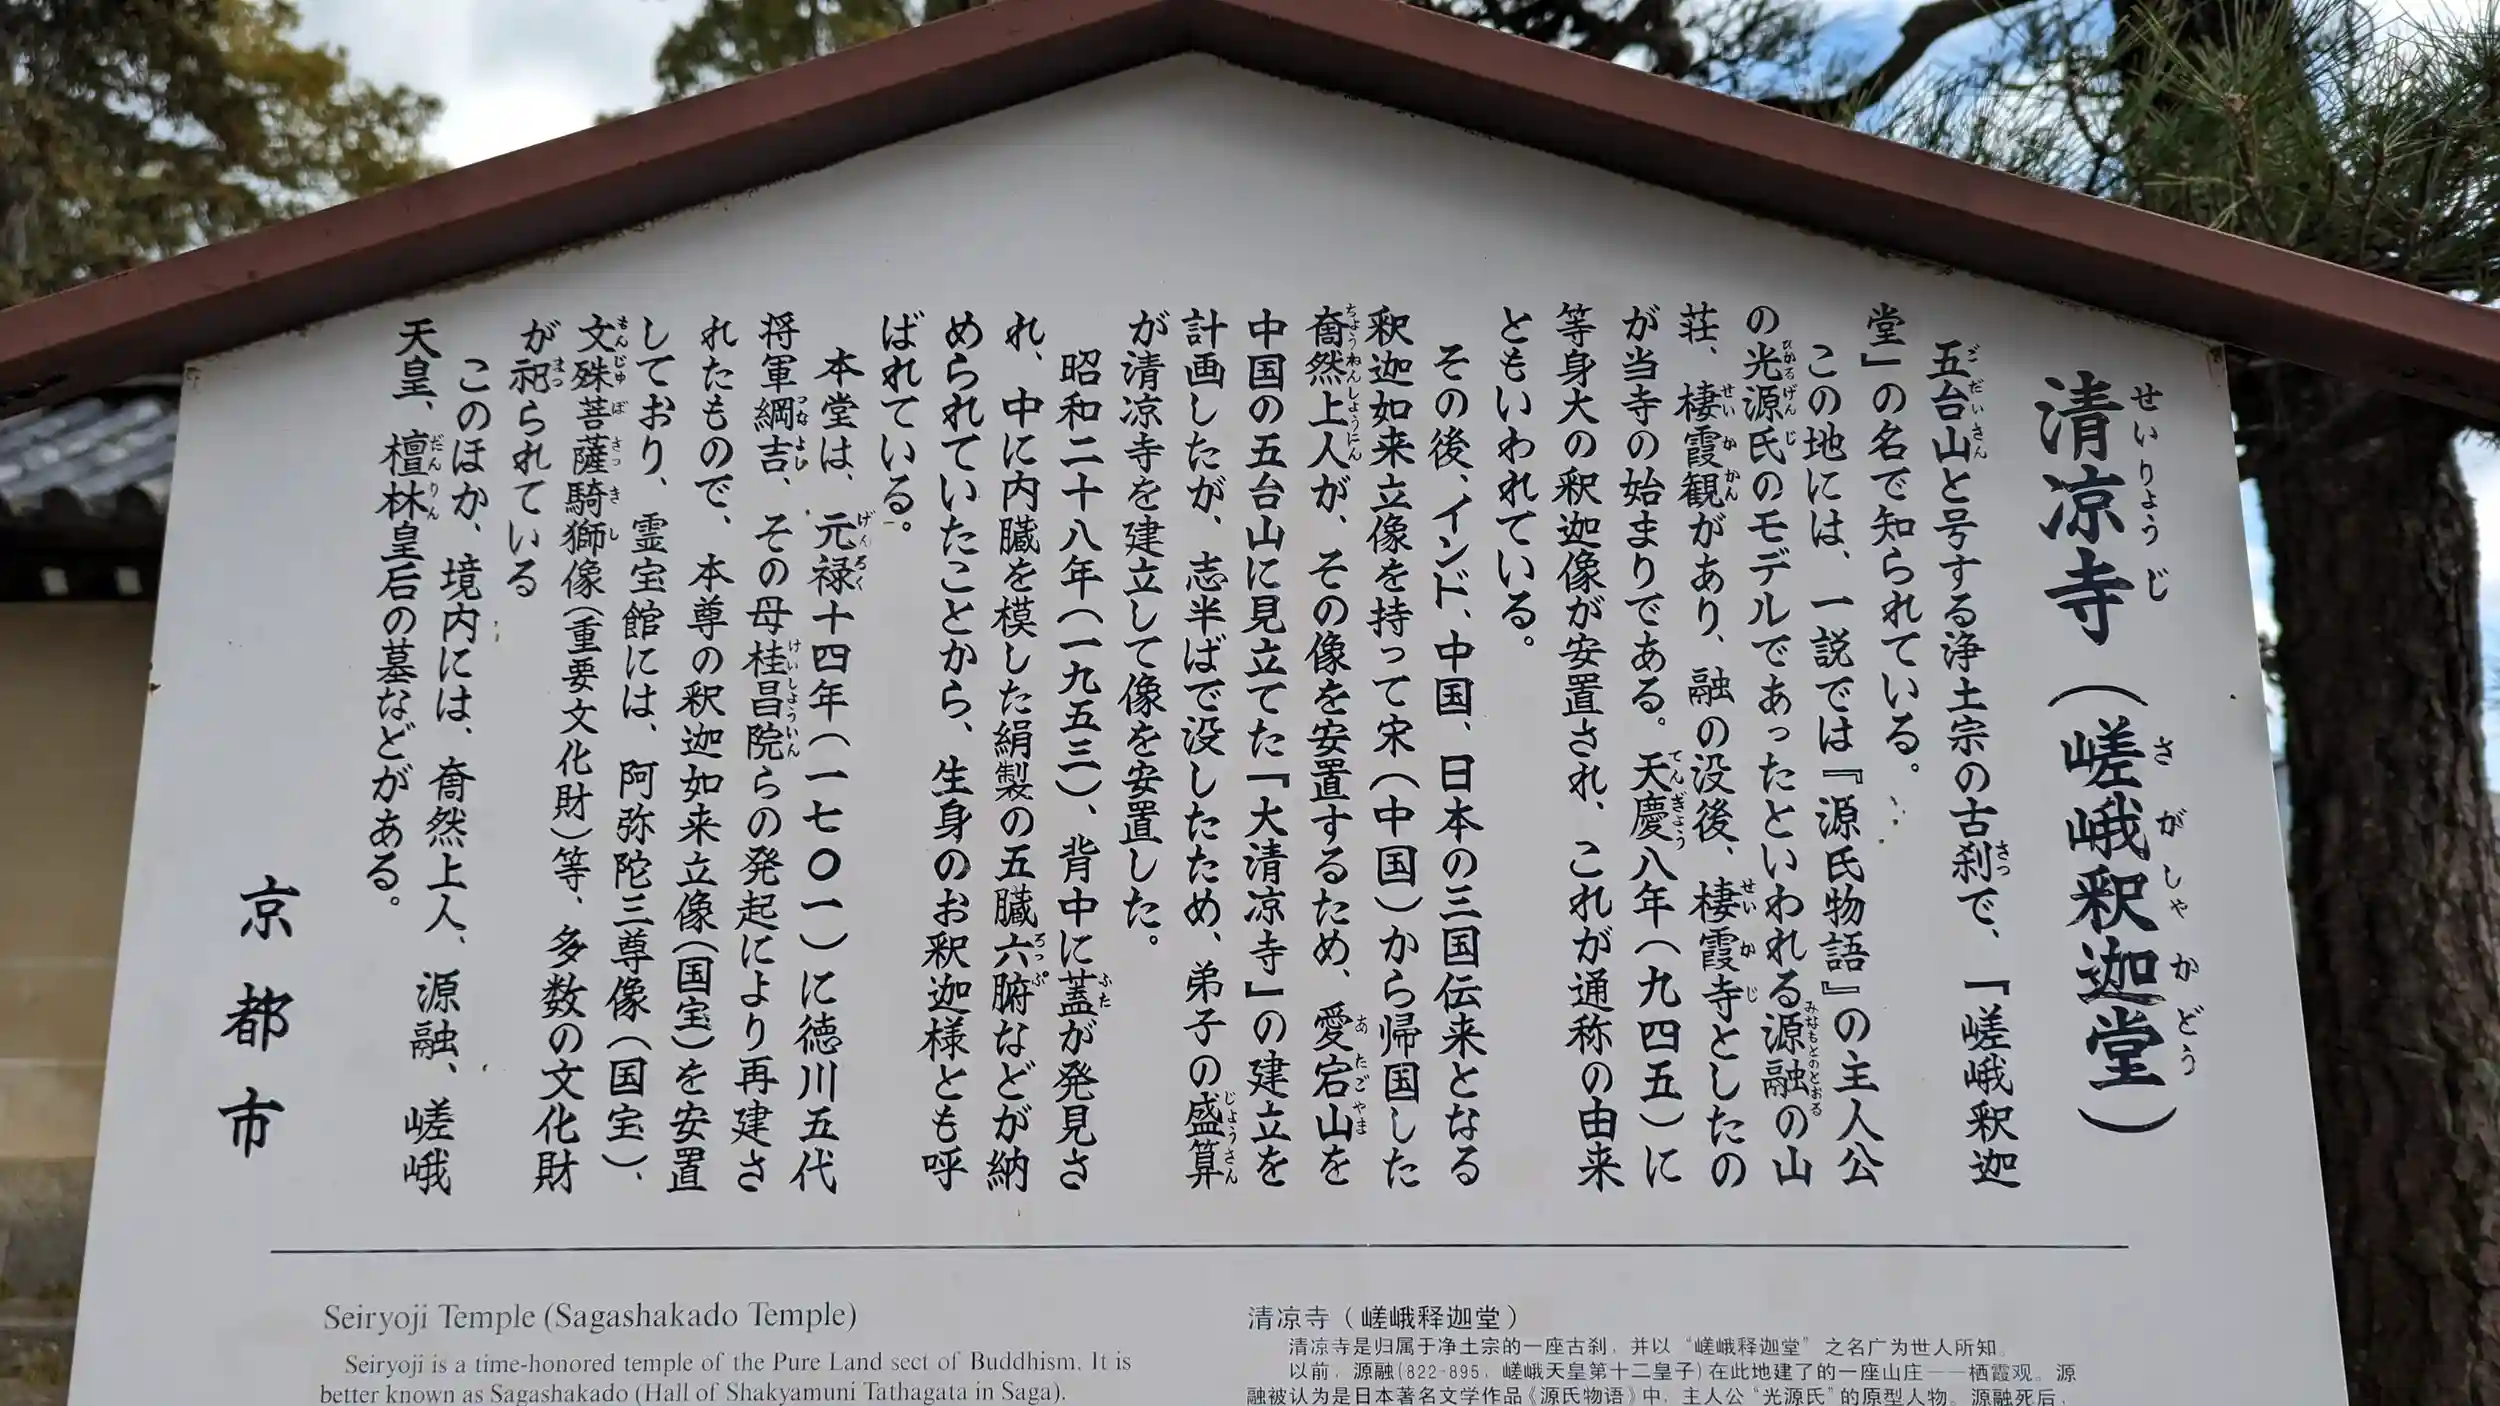 清凉寺（嵯峨釈迦堂）
五台山と号する浄土宗の古刹で、「嵯峨釈迦
堂」の名で知られている。
この地には、一説では『源氏物語』の主人公
の光源氏のモデルであったといわれる源融の山
荘、棲霞観があり、融の没後、棲霞寺としたの
が当寺の始まりである。天慶八年（九四五）に
等身大の釈迦像が安置され、これが通称の由来
ともいわれている。
その後、インド、中国、日本の三国伝来となる
釈迦如来立像を持って宋（中国）から帰国した
奝然上人が、その像を安置するため、愛宕山を
中国の五台山に見立てた「大清凉寺」の建立を
計画したが、志半ばで没したため、弟子の盛算
が清凉寺を建立して像を安置した。
昭和二十八年（一九五三）、背中に蓋が発見さ
れ、中に内臓を模した絹製の五臓六腑などが納
められていたことから、生身のお釈迦様とも呼
ばれている。
本堂は、元禄十四年（一七〇一）に徳川五代
将軍綱吉、その母桂昌院らの発起により再建さ
れたもので、本尊の釈迦如来立像（国宝）を安置
しており、霊宝館には、阿弥陀三尊像（国宝）、
文殊菩薩騎獅像（重要文化財）等、多数の文化財
が祀られている
このほか、境内には、奝然上人、源融、嵯峨
天皇、檀林皇后の墓などがある。
京都市
Seiryoji Temple (Sagashakado Temple)
Seiryoji is a time-honored temple of the Pure Land sect of Buddhism. It is
better known as Sagashakado (Hall of Shakyamuni Tathagata in Saga).
清凉寺（嵯峨释迦堂）
清凉寺是归属于净土宗的一座古刹，并以“嵯峨释迦堂”之名广为世人所知。
以前，源融(822-895，嵯峨天皇第十二皇子)在此地建了的一座山庄——栖霞观。源
融被认为是日本著名文学作品《源氏物语》中，主人公“光源氏”的原型人物。源融死后，